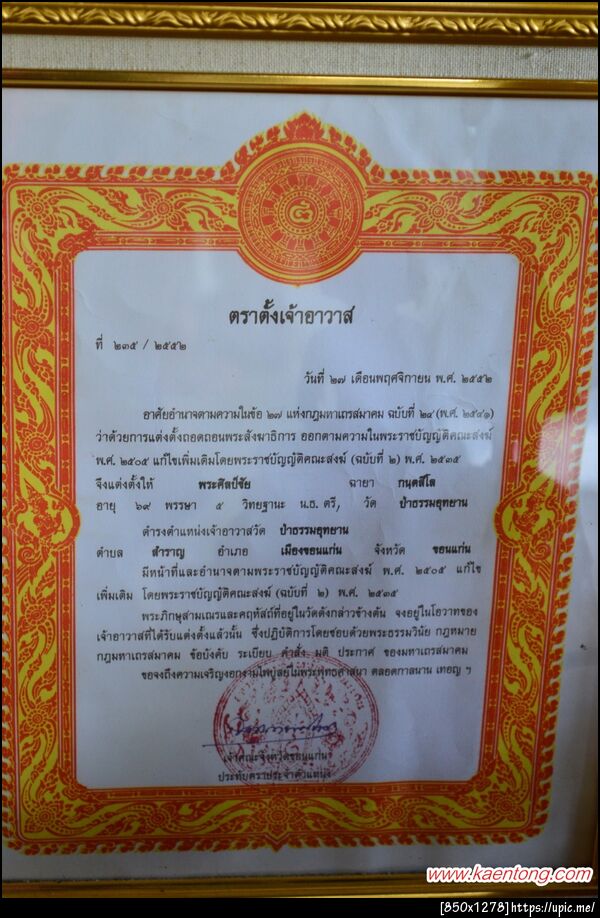 ตราตั้งเจ้าอาวาส
ที่ ๒๓๕ / ๒๕๕๒
วันที่ ๒๗ เดือนพฤศจิกายน พ.ศ. ๒๕๕๒
อาศัยอำนาจตามความในข้อ ๒๗ แห่งกฎมหาเถรสมาคม ฉบับที่ ๒๔ (พ.ศ. ๒๕๔๑)
ว่าด้วยการแต่งตั้งถอดถอนพระสังฆาธิการ ออกตามความในพระราชบัญญัติคณะสงฆ์
พ.ศ. ๒๕๐๕ แก้ไขเพิ่มเติมโดยพระราชบัญญัติคณะสงฆ์ (ฉบับที่ ๒) พ.ศ. ๒๕๓๕
จึงแต่งตั้งให้ พระศิลป์ชัย ฉายา กนฺตสีโล
อายุ ๖๙ พรรษา ๕ วิทยฐานะ น.ธ. ตรี, วัด ป่าธรรมอุทยาน
ดำรงตำแหน่งเจ้าอาวาสวัด ป่าธรรมอุทยาน
ตำบล สำราญ อำเภอ เมืองขอนแก่น จังหวัด ขอนแก่น
มีหน้าที่และอำนาจตามพระราชบัญญัติคณะสงฆ์ พ.ศ. ๒๕๐๕ แก้ไข
เพิ่มเติม โดยพระราชบัญญัติคณะสงฆ์ (ฉบับที่ ๒) พ.ศ. ๒๕๓๕
พระภิกษุสามเณรและคฤหัสถ์ที่อยู่ในวัดดังกล่าวข้างต้น จงอยู่ในโอวาทของ
เจ้าอาวาสที่ได้รับแต่งตั้งแล้วนั้น ซึ่งปฏิบัติการโดยชอบด้วยพระธรรมวินัย กฎหมาย
กฎมหาเถรสมาคม ข้อบังคับ ระเบียบ คำสั่ง มติ ประกาศ ของมหาเถรสมาคม
ขอจงถึงความเจริญงอกงามไพบูลย์ในพระพุทธศาสนา ตลอดกาลนาน เทอญ ฯ
เจ้าคณะจังหวัดขอนแก่น
ประทับตราประจำตำแหน่ง
www.kaentong.com
[850x1278]https://upic.me/